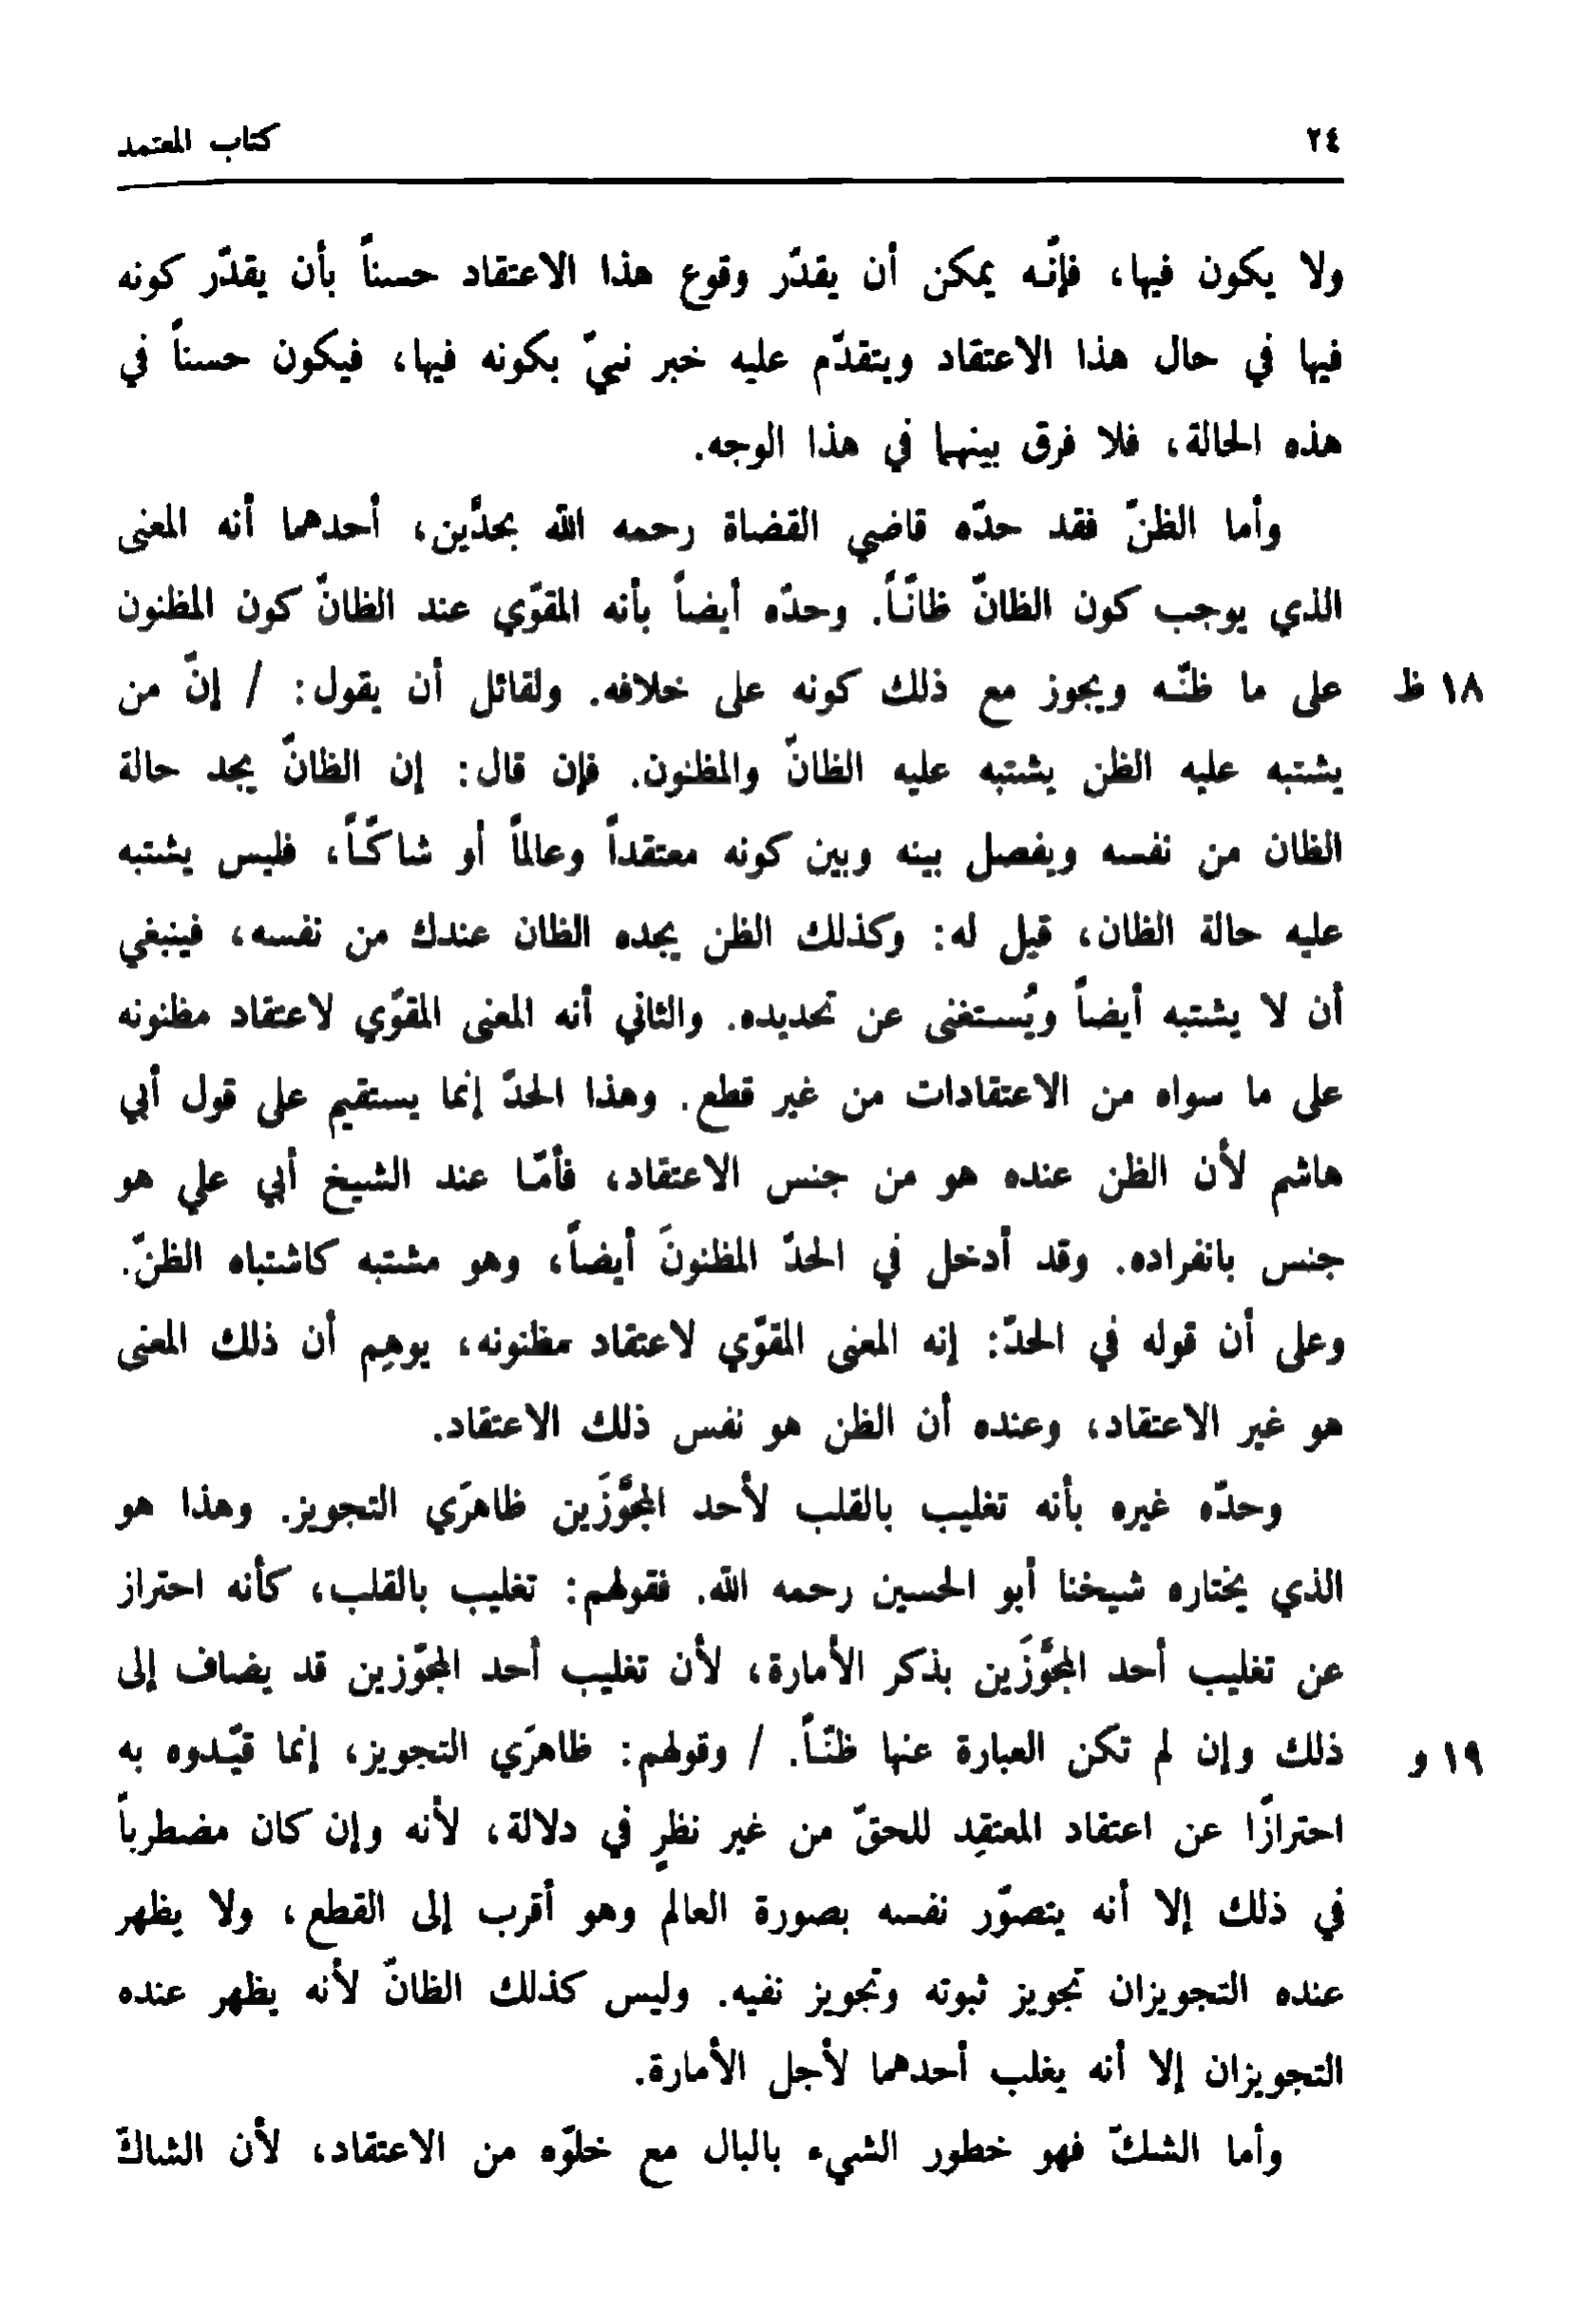 ٢٤ كتاب المعتمد
ولا يكون فيها، فإنّه يمكن أن يقدّر وقوع هذا الاعتقاد حسناً بأن يقدّر كونه
فيها في حال هذا الاعتقاد ويتقدّم عليه خبر نبيّ بكونه فيها، فيكون حسناً في
هذه الحالة، فلا فرق بينهما في هذا الوجه.
وأما الظنّ فقد حدّه قاضي القضاة رحمه الله بحدّين، أحدهما أنه المعنى
الذي يوجب كون الظانّ ظانّاً. وحدّه أيضاً بأنه المقوّي عند الظانّ كون المظنون
على ما ظنّه ويجوز مع ذلك كونه على خلافه. ولقائل أن يقول: / إنّ من ١٨ ظ
يشتبه عليه الظن يشتبه عليه الظانّ والمظنون. فإن قال: إن الظانّ يجد حالة
الظان من نفسه ويفصل بينه وبين كونه معتقداً وعالماً أو شاكّاً، فليس يشتبه
عليه حالة الظان، قيل له: وكذلك الظن يجده الظان عندك من نفسه، فينبغي
أن لا يشتبه أيضاً ويُستغنى عن تحديده. والثاني أنه المعنى المقوّي لاعتقاد مظنونه
على ما سواه من الاعتقادات من غير قطع. وهذا الحدّ إنما يستقيم على قول أبي
هاشم لأن الظن عنده هو من جنس الاعتقاد، فأمّا عند الشيخ أبي علي هو
جنس بانفراده. وقد أدخل في الحدّ المظنونَ أيضاً، وهو مشتبه كاشتباه الظنّ.
وعلى أن قوله في الحدّ: إنه المعنى المقوّي لاعتقاد مظنونه، يوهِم أن ذلك المعنى
هو غير الاعتقاد، وعنده أن الظن هو نفس ذلك الاعتقاد.
وحدّه غيره بأنه تغليب بالقلب لأحد المجوَّزَين ظاهرَي التجويز. وهذا هو
الذي يختاره شيخنا أبو الحسين رحمه الله. فقولهم: تغليب بالقلب، كأنه احتراز
عن تغليب أحد المجوَّزَين بذكر الأمارة، لأن تغليب أحد المجوّزين قد يضاف إلى
ذلك وإن لم تكن العبارة عنها ظنّاً. / وقولهم: ظاهرَي التجويز، إنما قيّدوه به ١٩ و
احترازًا عن اعتقاد المعتقِد للحقّ من غير نظرٍ في دلالة، لأنه وإن كان مضطرباً
في ذلك إلا أنه يتصوّر نفسه بصورة العالم وهو أقرب إلى القطع، ولا يظهر
عنده التجويزان تجويز ثبوته وتجويز نفيه. وليس كذلك الظانّ لأنه يظهر عنده
التجويزان إلا أنه يغلب أحدهما لأجل الأمارة.
وأما الشكّ فهو خطور الشيء بالبال مع خلوّه من الاعتقاد، لأن الشاكّ